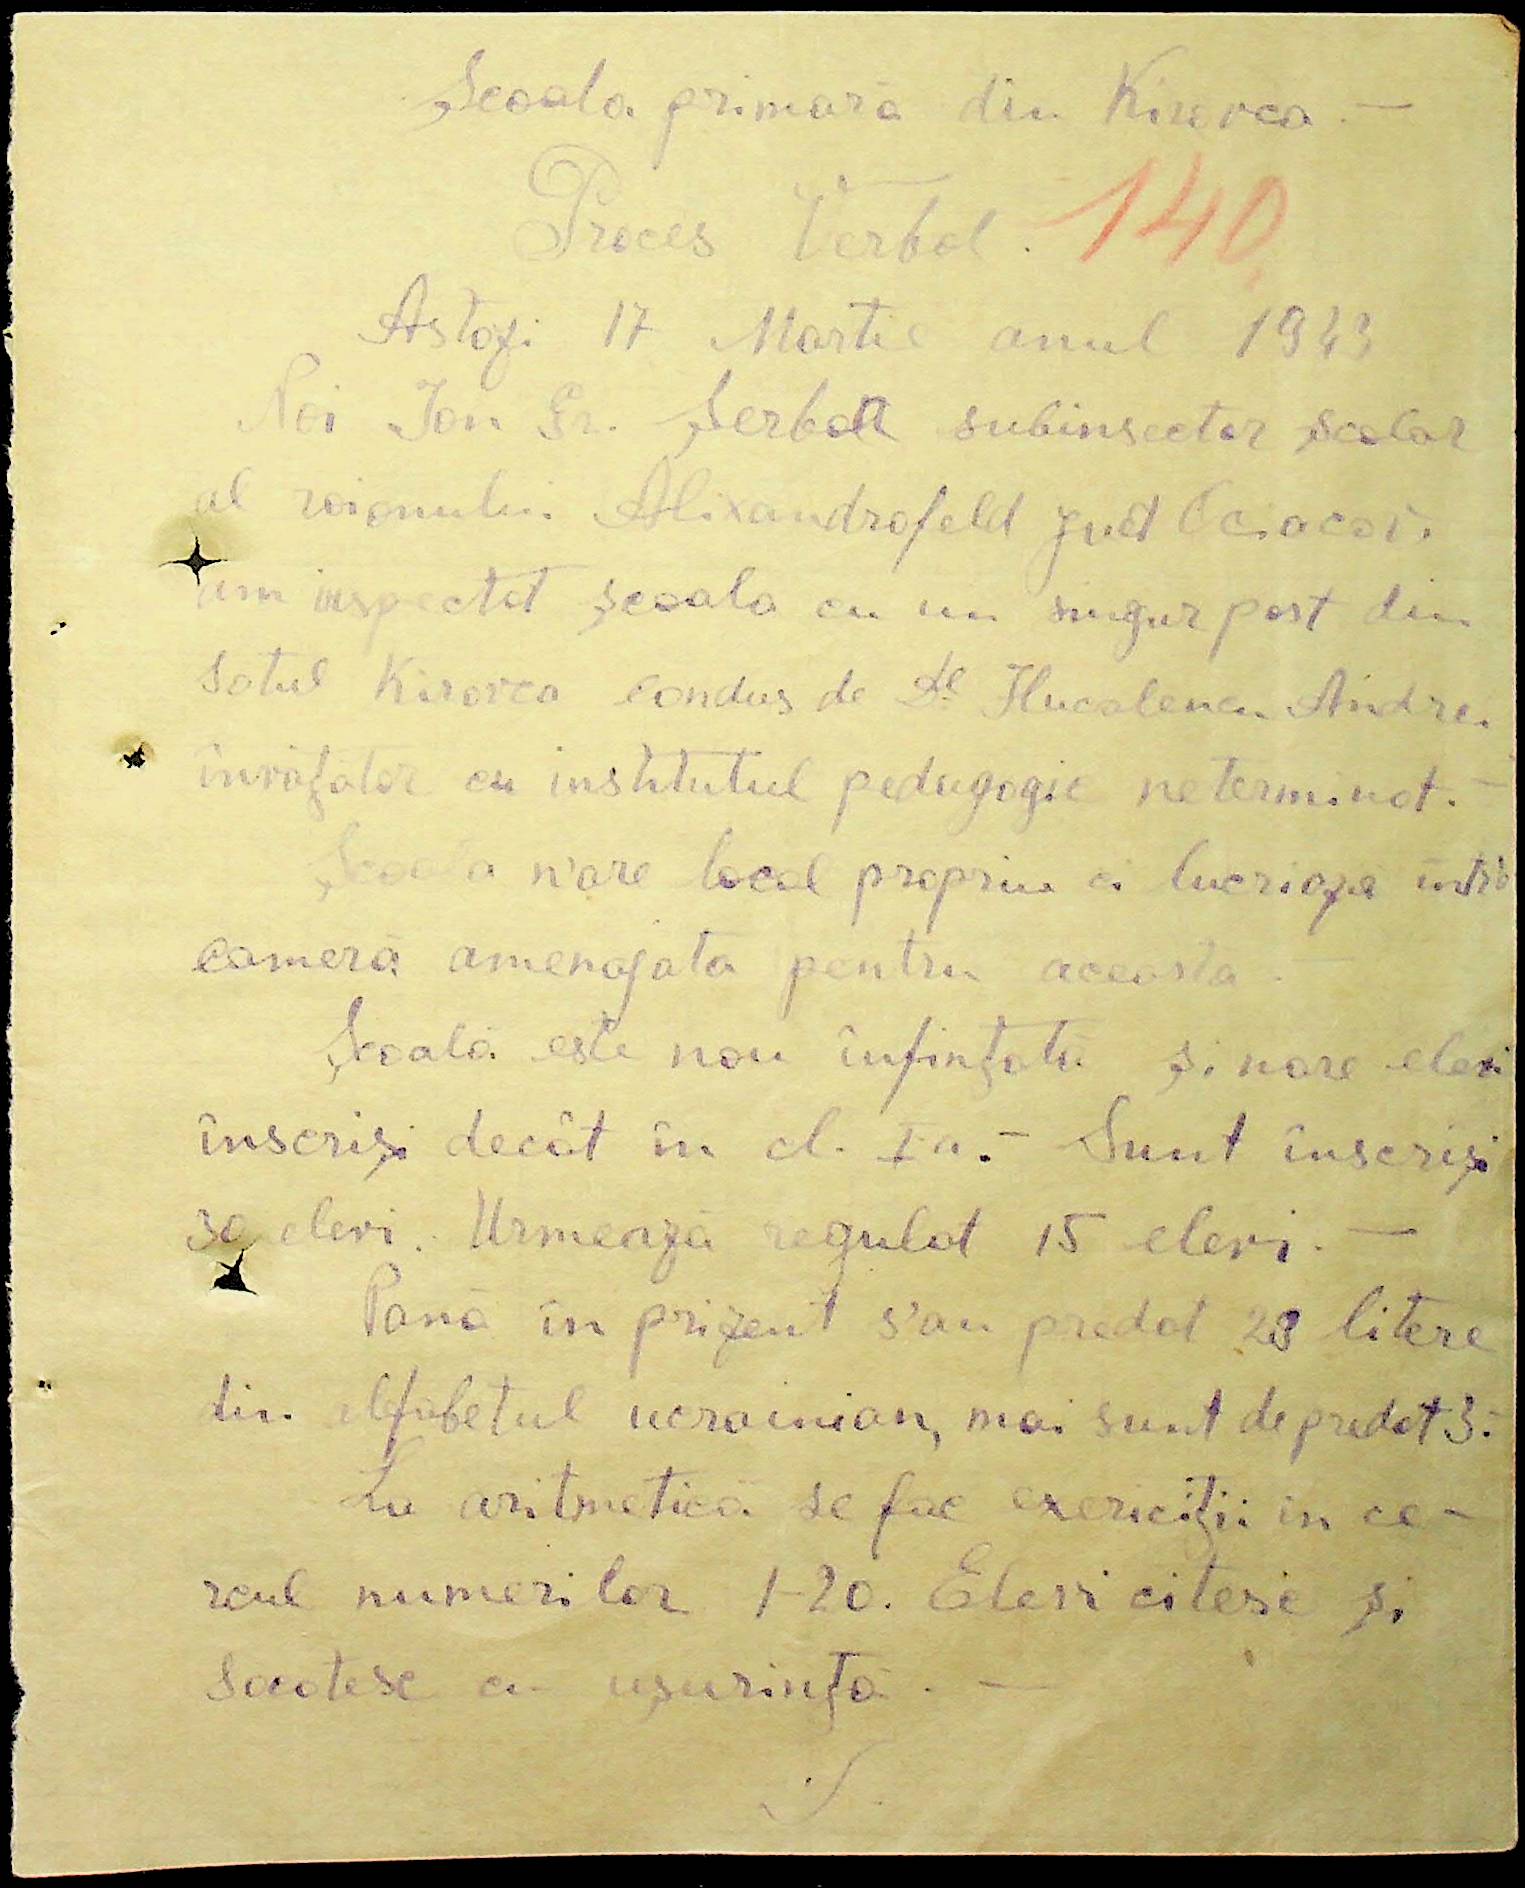 Școala primară din Kirovca. —
Proces Verbal. 140
Astăzi 17 Martie anul 1943
Noi Ion Gr. Șerban subinsector școlar
al raionului Alixandrofeld jud Oceacov.
am inspectat școala cu un singur post din
satul Kirovca condus de Dl Andrei
învățător cu institutul pedagogic neterminat. —
Școala n'are local propriu ci lucriază intr'o
cameră amenajata pentru aceasta. —
Școală este nou înființată și nare elevi
înscriși decât în cl. I a. — Sunt înscriși
30 elevi. Urmează regulat 15 elevi. —
Pană în prizent s'au predat 28 litere
din alfabetul ucrainian, mai sunt de predat 3. —
La aritmetică se fac exericiții in ce-
rcul numerilor 1-20. Elevi citesc și
socotesc cu ușurință. —